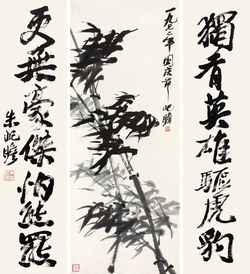 獨有英雄驅虎豹
一九七二年國慶節 屺瞻
更無豪傑怕熊羆
朱屺瞻